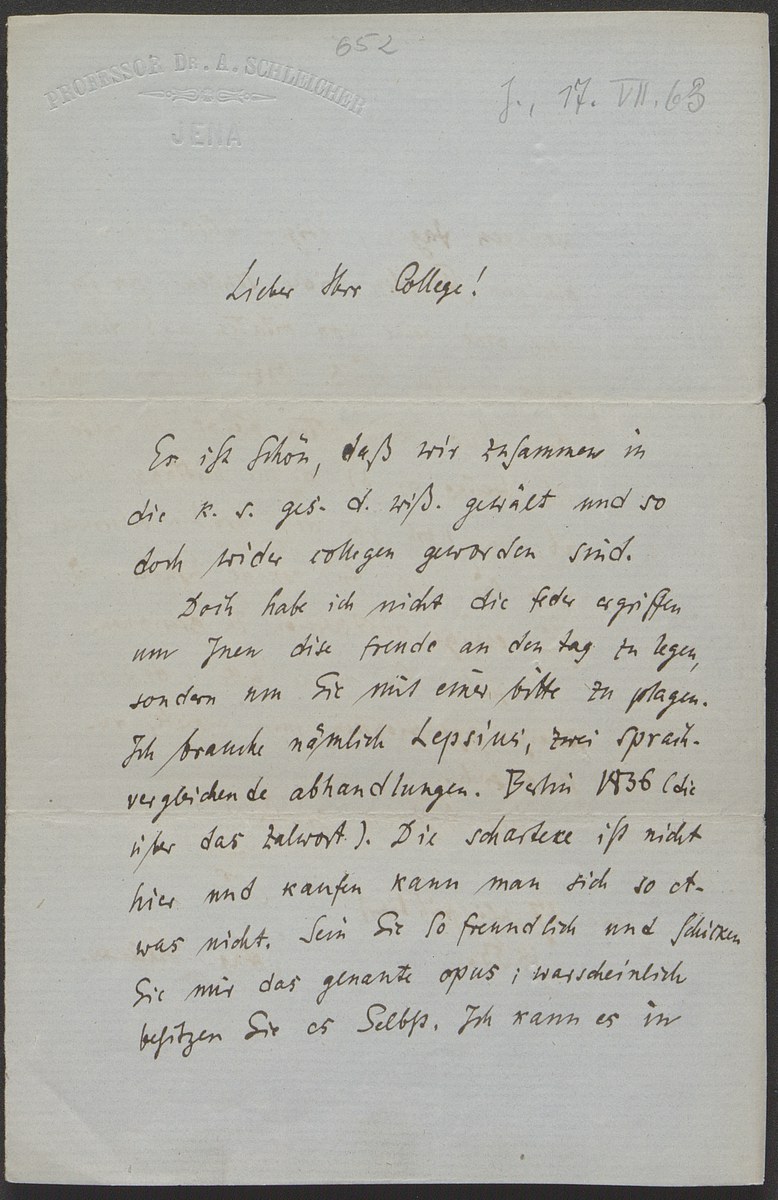 652
PROFESSOR DR. A. SCHLEICHER
JENA
J., 17. VII. 63
Lieber Herr College!
Es ist schön, daß wir zusammen in
die k. s. ges. d. wiß. gewält und so
doch wider collegen geworden sind.
Doch habe ich nicht die feder ergriffen
um Jnen dise freude an den tag zu legen,
sondern um Sie mit einer bitte zu plagen.
Ich brauche nämlich Lepsius, zwei sprach-
vergleichende abhandlungen. Berlin 1836 (die
über das zalwort). Die scharteke ist nicht
hier und kaufen kann man sich so et-
was nicht. Sein Sie so freundlich und schicken
Sie mir das genante opus; warscheinlich
besitzen Sie es Selbst. Ich kann es in